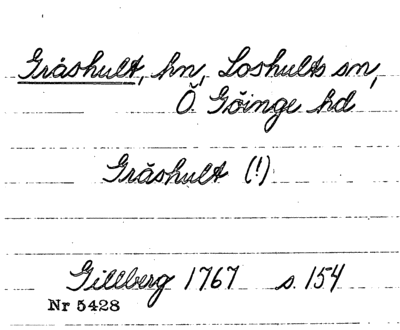 Gråshult, hn, Loshults sn,
Ö. Göinge hd
Gråshult (!)
Gillberg 1767 s. 154
Nr 5428